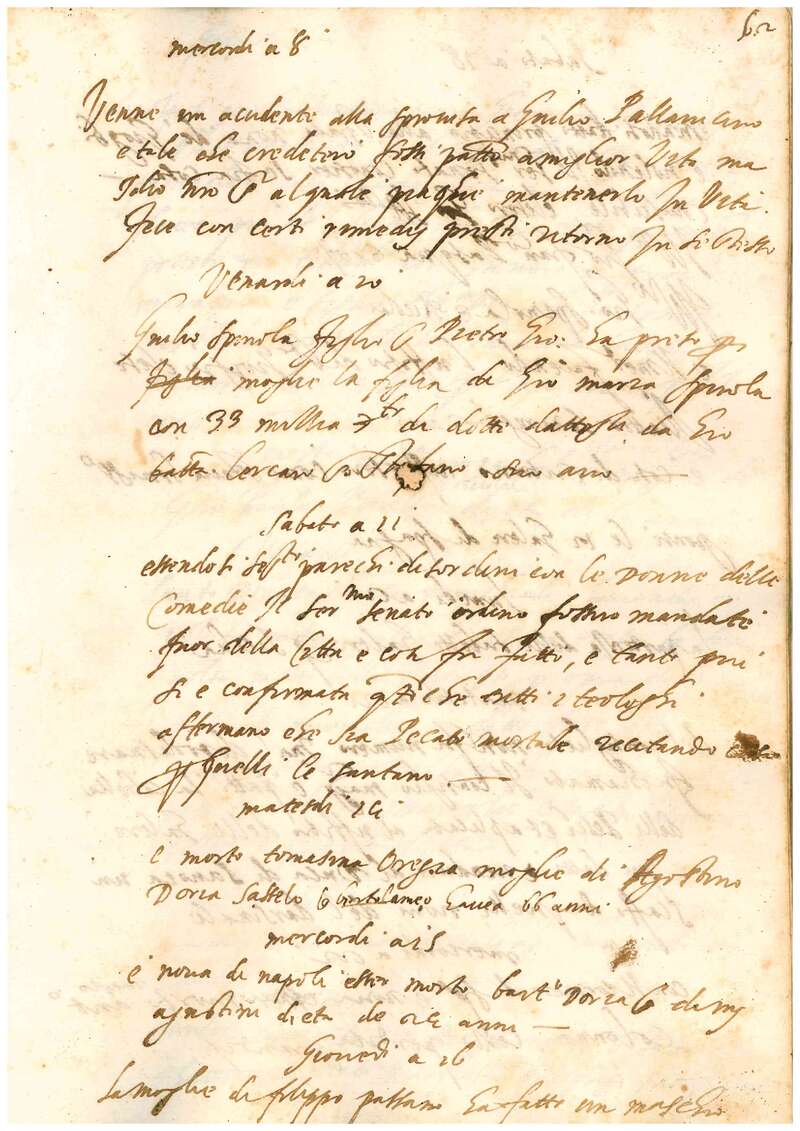 62
mercordi a 8
Venne un acidente alla sprovista a Giulio Pallavicino
e tale che credetero fossi passato a miglior Vita ma
Idio al quale piaque mantenerlo in Vita
fece con certi rimedij presti ritorno in se stesso
Venardi a 10
Giulio Spinola figlio Pietro Gio: ha preso per
moglie la figlia di Gio maria Spinola
con 33 millia di dotti dattogli da Gio
batta Cercaro Stefano suo avo
Sabato a 11
essendosi parechi disordini con le Donne delle
Comedie Il Ser.mo Senato ordino fossero mandate
fuor della Citta e cosi fu fatto, e tanto piu
si e confirmata che tutti i teologhi
affermano che sia Pecato mortale recitando
per quelli le sentano
matesdi 14
e morto tomasina Oregia moglie di Agostino
Doria Sastelo bortolameo havea 66 anni
mercordi a 15
e nova di napoli esser morto Doria
agostini di eta de anni
Giovedi a 16
La moglie di filippo passano ha fatto un maschio